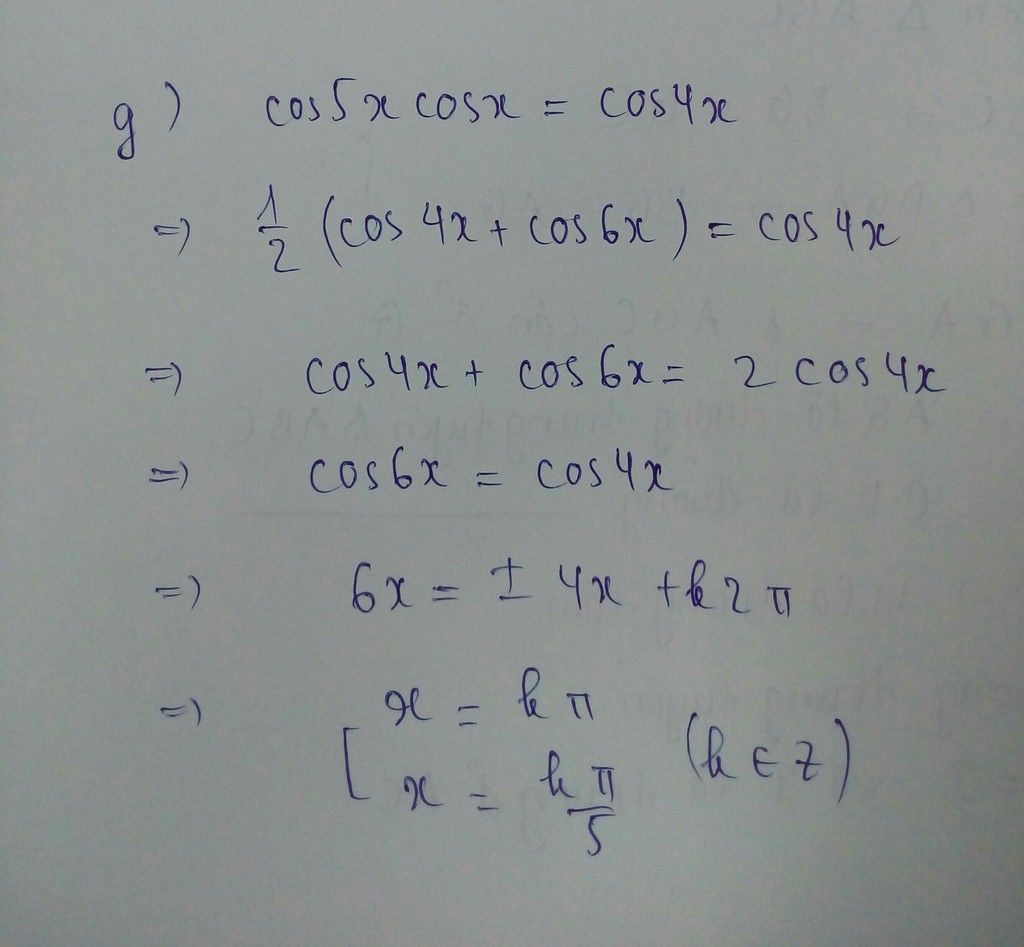 g) cos5x cosx = cos4x
=) 1/2 (cos 4x + cos6x) = cos 4x
=) cos4x + cos6x = 2 cos4x
=) cos6x = cos4x
=) 6x = ± 4x + k2π
=) [ x = kπ
x = kπ/5 (k ∈ z)